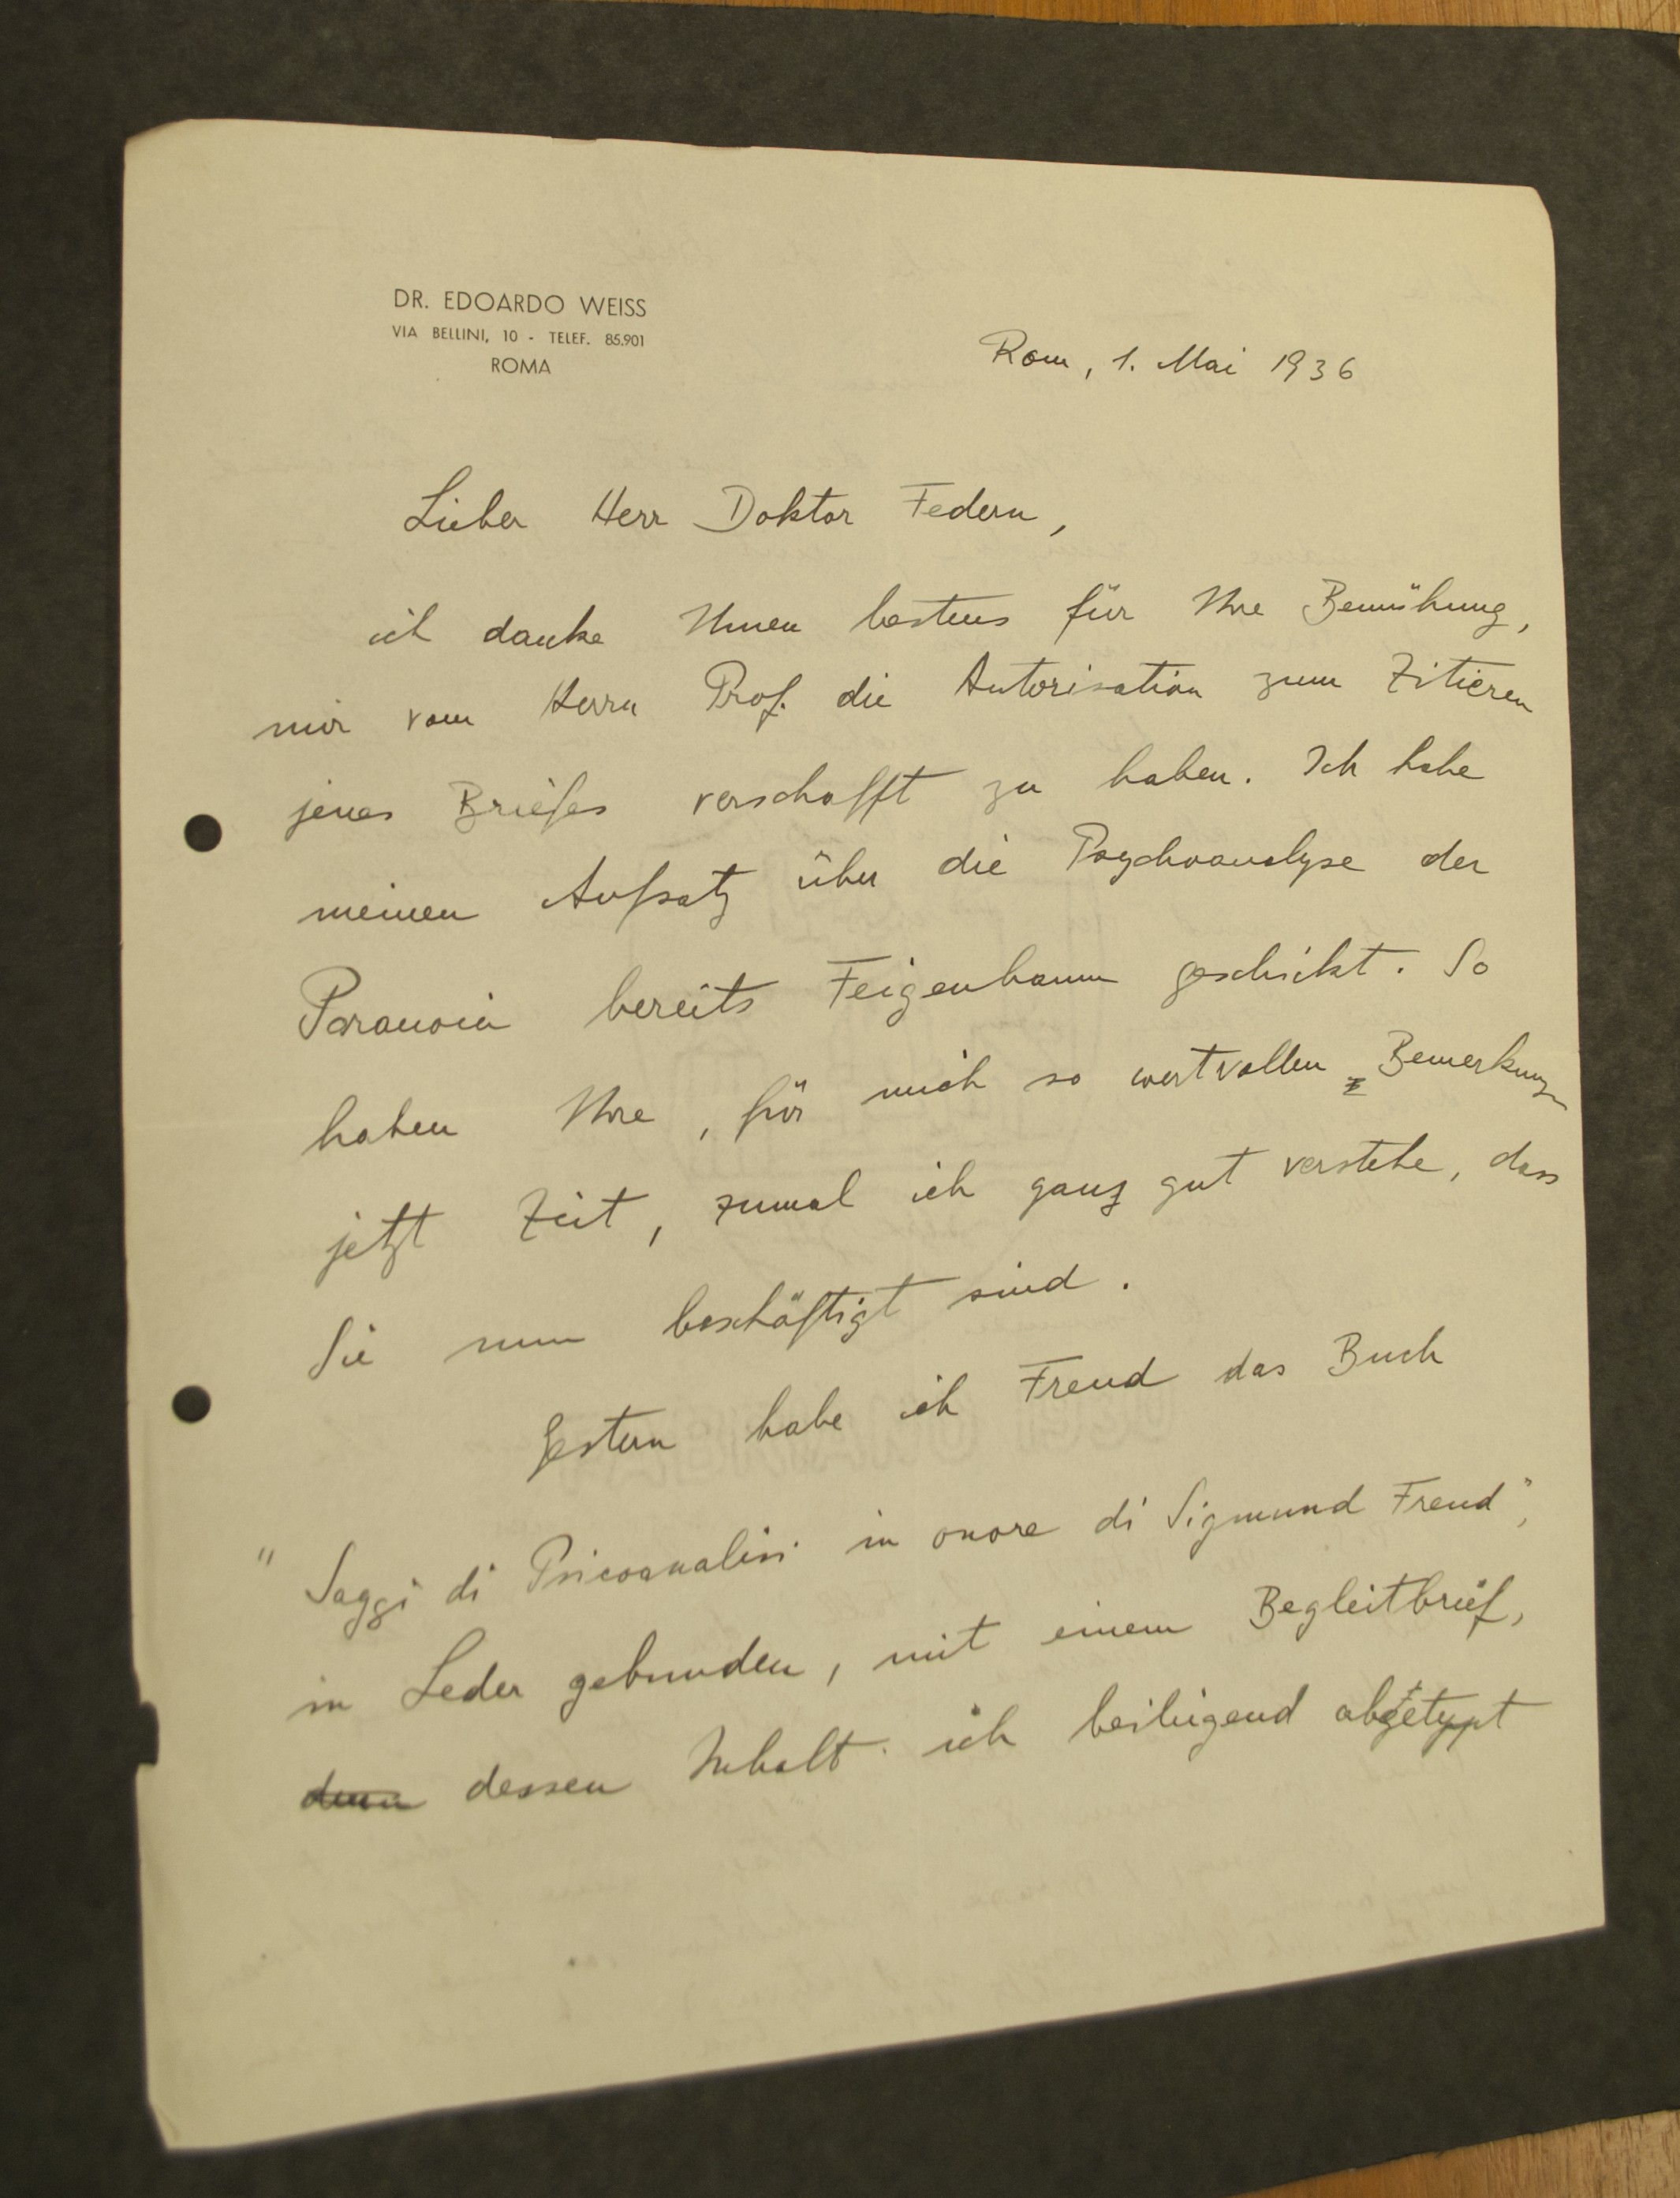 DR. EDOARDO WEISS
VIA BELLINI, 10 - TELEF. 85.901
ROMA
Rom, 1. Mai 1936
Lieber Herr Doktor Federn,
ich danke Ihnen bestens für Ihre Bemühung,
mir vom Herrn Prof. die Autorisation zum Zitieren
jenes Briefes verschafft zu haben. Ich habe
meinen Aufsatz über die Psychoanalyse der
Paranoia bereits Feigenbaum geschickt. So
haben Ihre, für mich so wertvollen Bemerkungen
jetzt Zeit, zumal ich ganz gut verstehe, dass
Sie nun beschäftigt sind.
Gestern habe ich Freud das Buch
"Saggi di Psicoanalisi in onore di Sigmund Freud",
in Leder gebunden, mit einem Begleitbrief,
dessen Inhalt ich beiliegend abgetypt